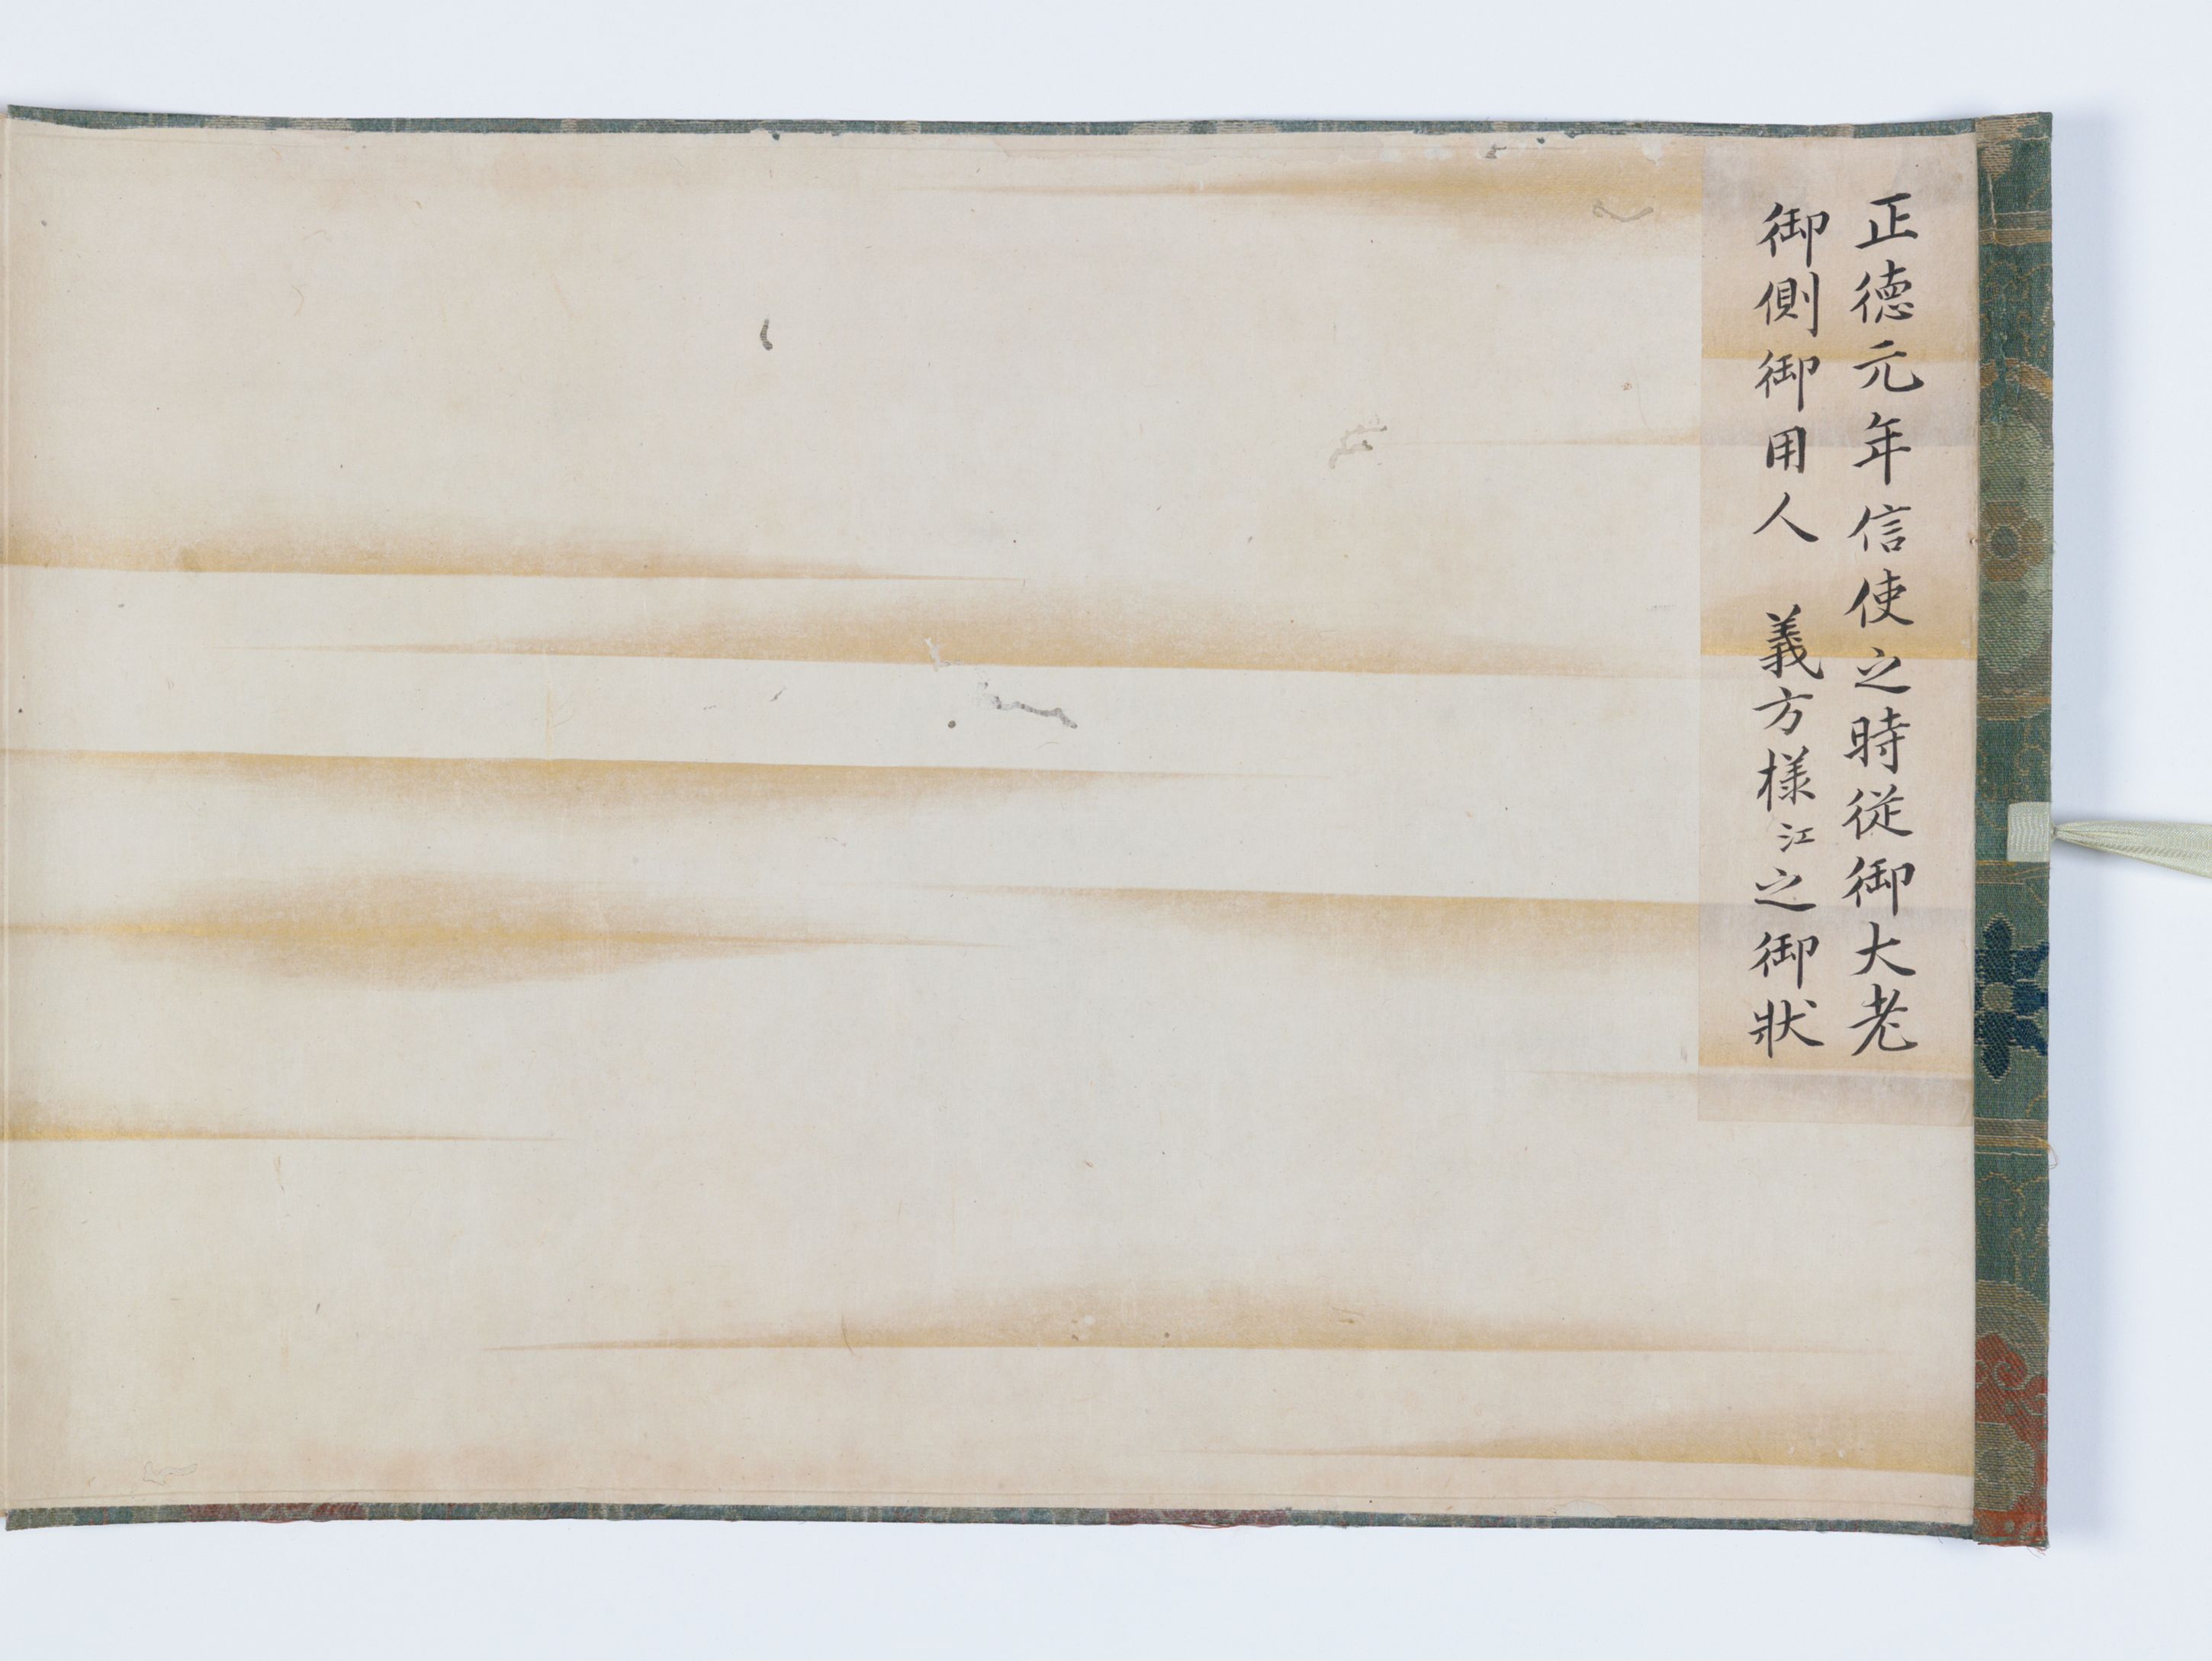 正徳元年信使之時従御大老
御側御用人　義方様江之御状